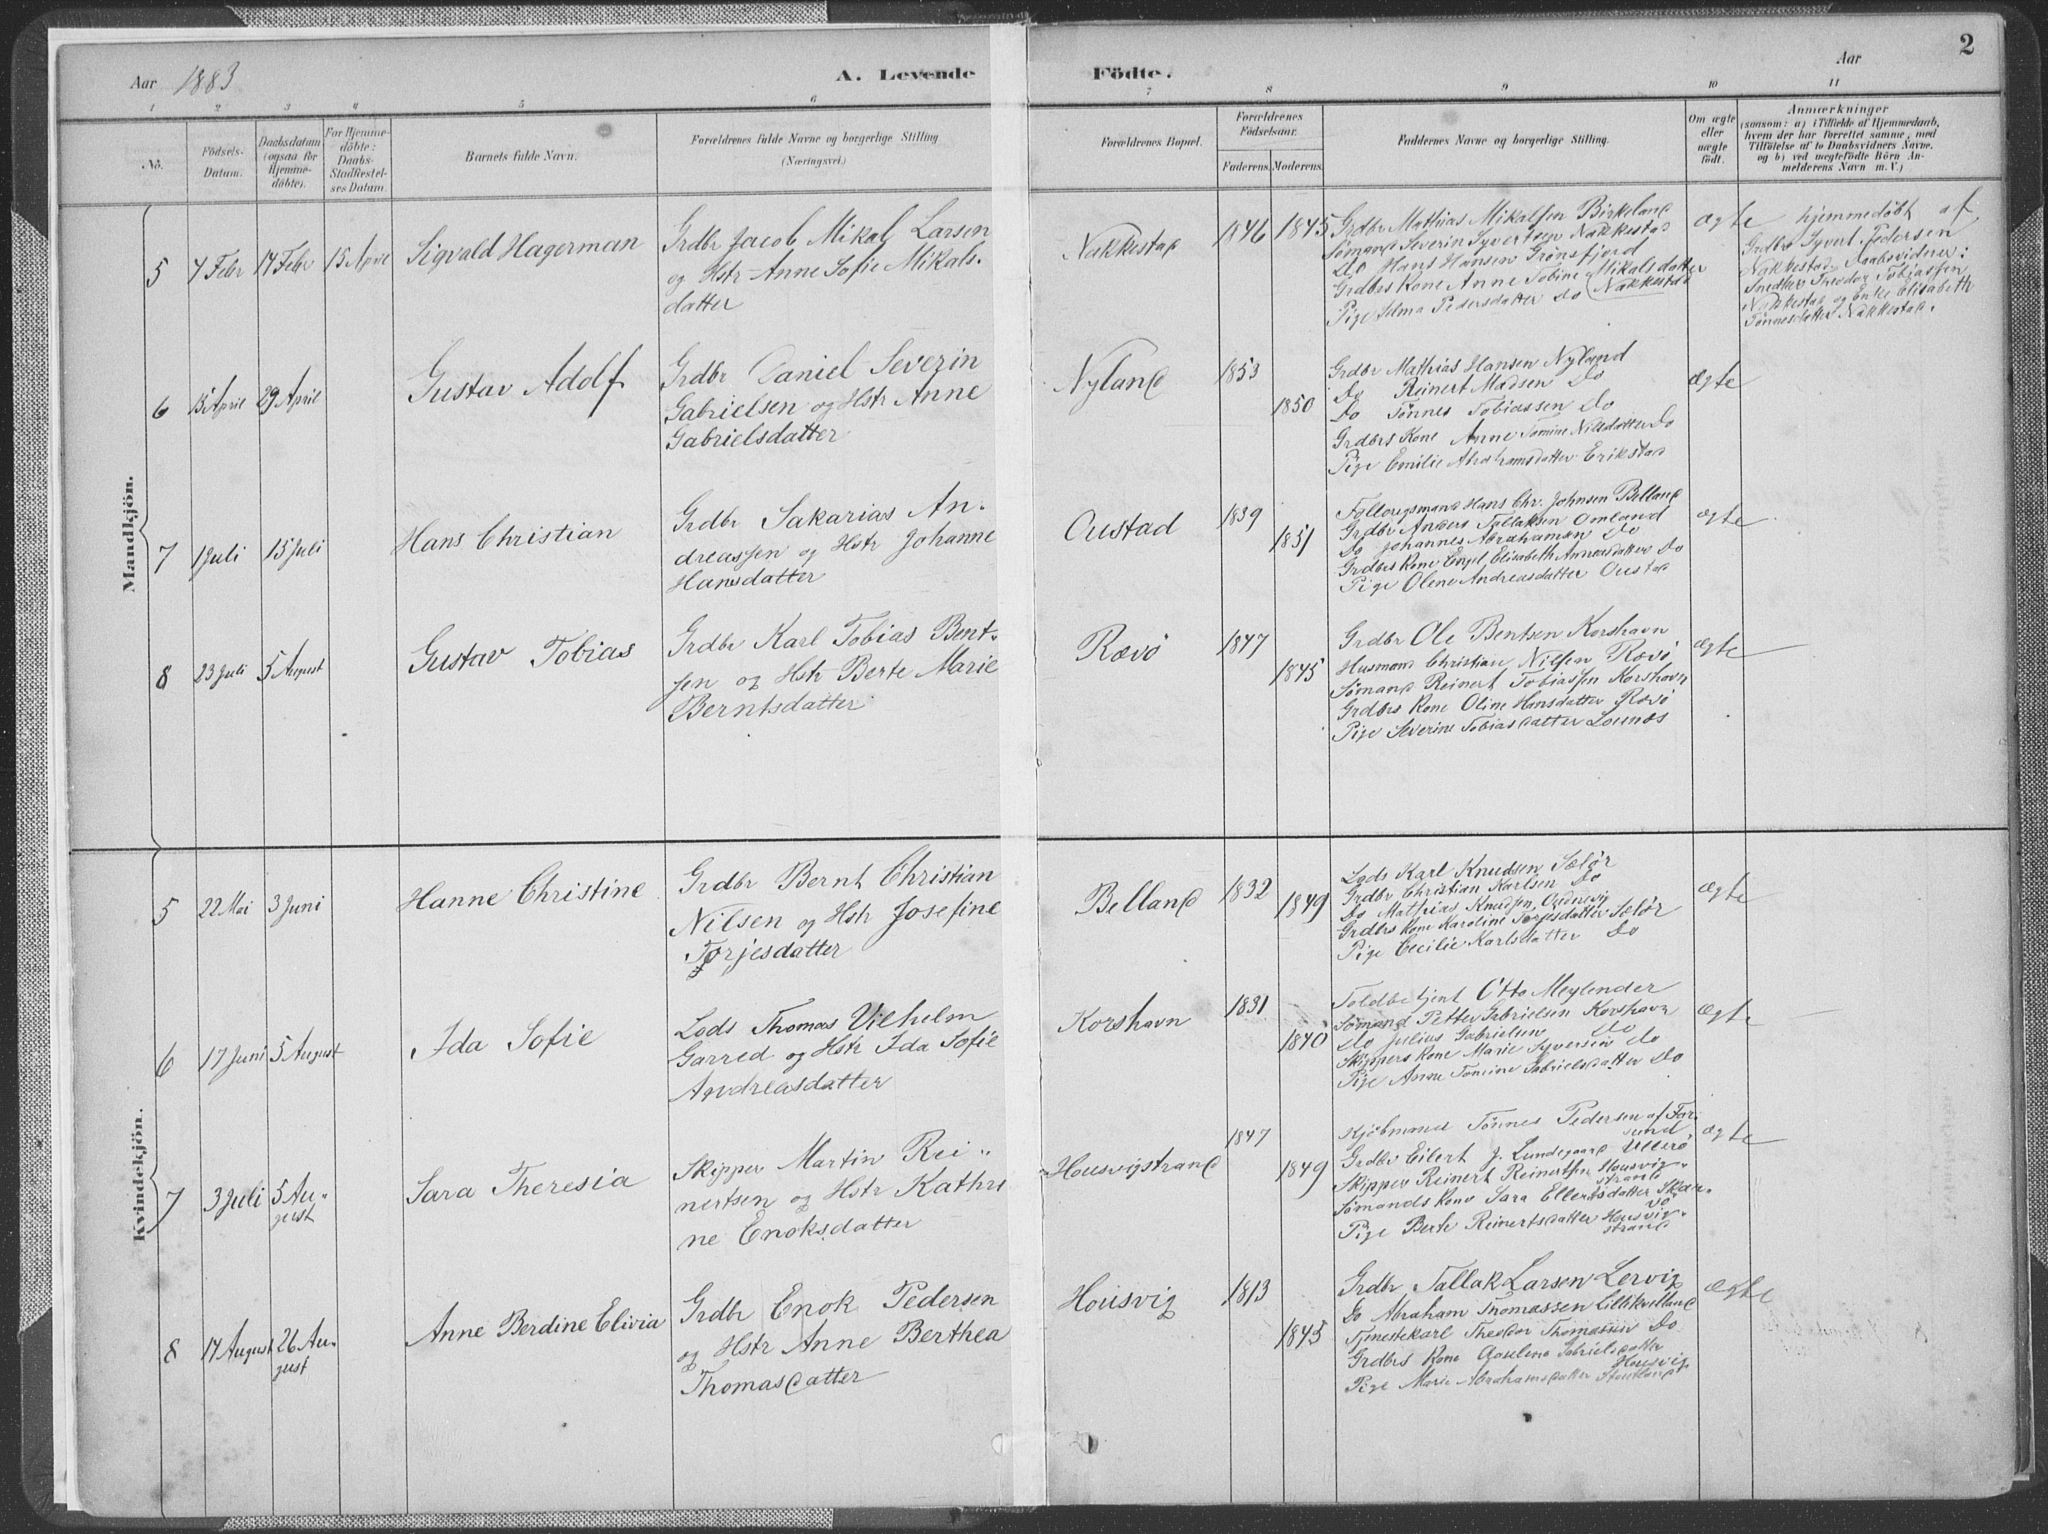 2
Aar 1883
A. Levende Födte.
Aar
1 2 3 4 5 6 7 8 9 10 11
No.
Födsels-Datum.
Daabsdatum (ogsaa for Hjemme-döbte).
For Hjemme-döbte: Daabs-Stadfæstel-ses Datum.
Barnets fulde Navn.
Forældrenes fulde Navne og borgerlige Stilling
(Næringsvei.)
Forældrenes Bopæl.
Forældrenes Födselsaar.
Faderens. Moderens.
Faddernes Navne og borgerlige Stilling.
Om ægte eller uægte födt.
Anmærkninger
(saasom: a) i Tilfælde af Hjemmedaab,
hvem der har forrettet samme, med
Tilföielse af to Daabsvidners Navne,
og b) ved uægtefödte Börn An-
melderens Navn m. V.)
Mandkjön.
5 7 Febr 17 Febr 15 April Sigvald Hagerman
Grdbr Jacob Mikal Larsen
og Hstr Anne Sofie Mikals-
datter
Nakkestad 1846 1845
Grdbr Mathias Mikalsen Birkeland
Sømand Severin Syvertsen Nakkestad
Do Hans Hansen Grønsfjord
Grdbrs Kone Anne Tobine Mikalsdatter
Pige Selma Pedersdatter do (Nakkestad
ægte
hjemmedøbt af
Grdbr Syvert Pedersen
Nakkestad, Daabsvidner:
Theodor Tobiassen
Nakkestad og Enke Elisabeth
Tønnesdatter Nakkestad.
6 13 April 29 April Gustav Adolf
Grdbr Daniel Severin
Gabrielsen og Hstr Anne
Gabrielsdatter
Nyland 1853 1850
Grdbr Mathias Hansen Nyland
Do Reinert Madsen Do
Do Tønnes Tobiassen Do
Grdbrs Kone Anne Tomine Nilsdatter Do
Pige Emilie Abrahamsdatter Erikstad
ægte
7 1 Juli 15 Juli Hans Christian
Grdbr Sakarias An-
dreassen og Hstr Johanne
Hansdatter
Oustad 1839 1851
Hans Chr. Johnsen Belland
Grdbr Anders Tallaksen Omland
Do Johannes Abrahamsen Do
Grdbrs Kone Engel Elisabeth Anneasdatter Do
Pige Olene Andreasdatter Oustad
ægte
8 23 Juli 5 August Gustav Tobias
Grdbr Karl Tobias Bent-
sen og Hstr Berte Marie
Berntsdatter
Rævø 1847 1845
Grdbr Ole Bentsen Korshavn
Husmand Christian Nilsen Rævø
Sømand Reinert Tobiassen Korshavn
Grdbrs Kone Oline Hansdatter Rævø
Pige Severine Tobiasdatter Launes
ægte
Kvindekjön.
5 22 Mai 3 Juni Hanne Christine
Grdbr Bernt Christian
Nilsen og Hstr Josefine
Torjesdatter
Belland 1832 1849
Lods Karl Knudsen Sælør
Grdbr Christian Karlsen Do
Do Mathias Knudsen
Grdbrs Kone Karoline Torjesdatter Sælør
Pige Cecilie Karlsdatter Do
ægte
6 17 Juni 5 August Ida Sofie
Lods Thomas Vilhelm
Garred og Hstr Ida Sofie
Andreasdatter
Korshavn 1831 1840
Toldbetjent Otto Meylender
Sømand Petter Gabrielsen Korshavn
Do Julius Gabrielsen do
Skippers Kone Marie Syversen do
Pige Anne Tomine Gabrielsdatter Do
ægte
7 3 Juli 5 Au-
gust
Sara Theresia
Skipper Martin Rei-
nertsen og Hstr Kathri
ne Enoksdatter
Housvigstrand 1847 1849
Kjøbmand Tønnes Pedersen af Far-
sund
Grdbr Eilert J. Lundegaard Ullerø
Skipper Reinert Reinertsen Housvig-
strand
Sømands Kone Sara Ellertsdatter
Pige Berte Reinertsdatter Housvig-
strand
ægte
8 17 August 26 Au-
gust
Anne Berdine Elivia
Grdbr Enok Pedersen
og Hstr Anne Berthea
Thomasdatter
Housvig 1813 1845
Grdbr Tallak Larsen Lervig
Do Abraham Thomassen Lillikvelland
Tjenestekarl Theodor Thomassen Do
Grdbrs Kone Gabrielsdatter
Housvig
Pige Marie Abrahamsdatter Stoutland
ægte